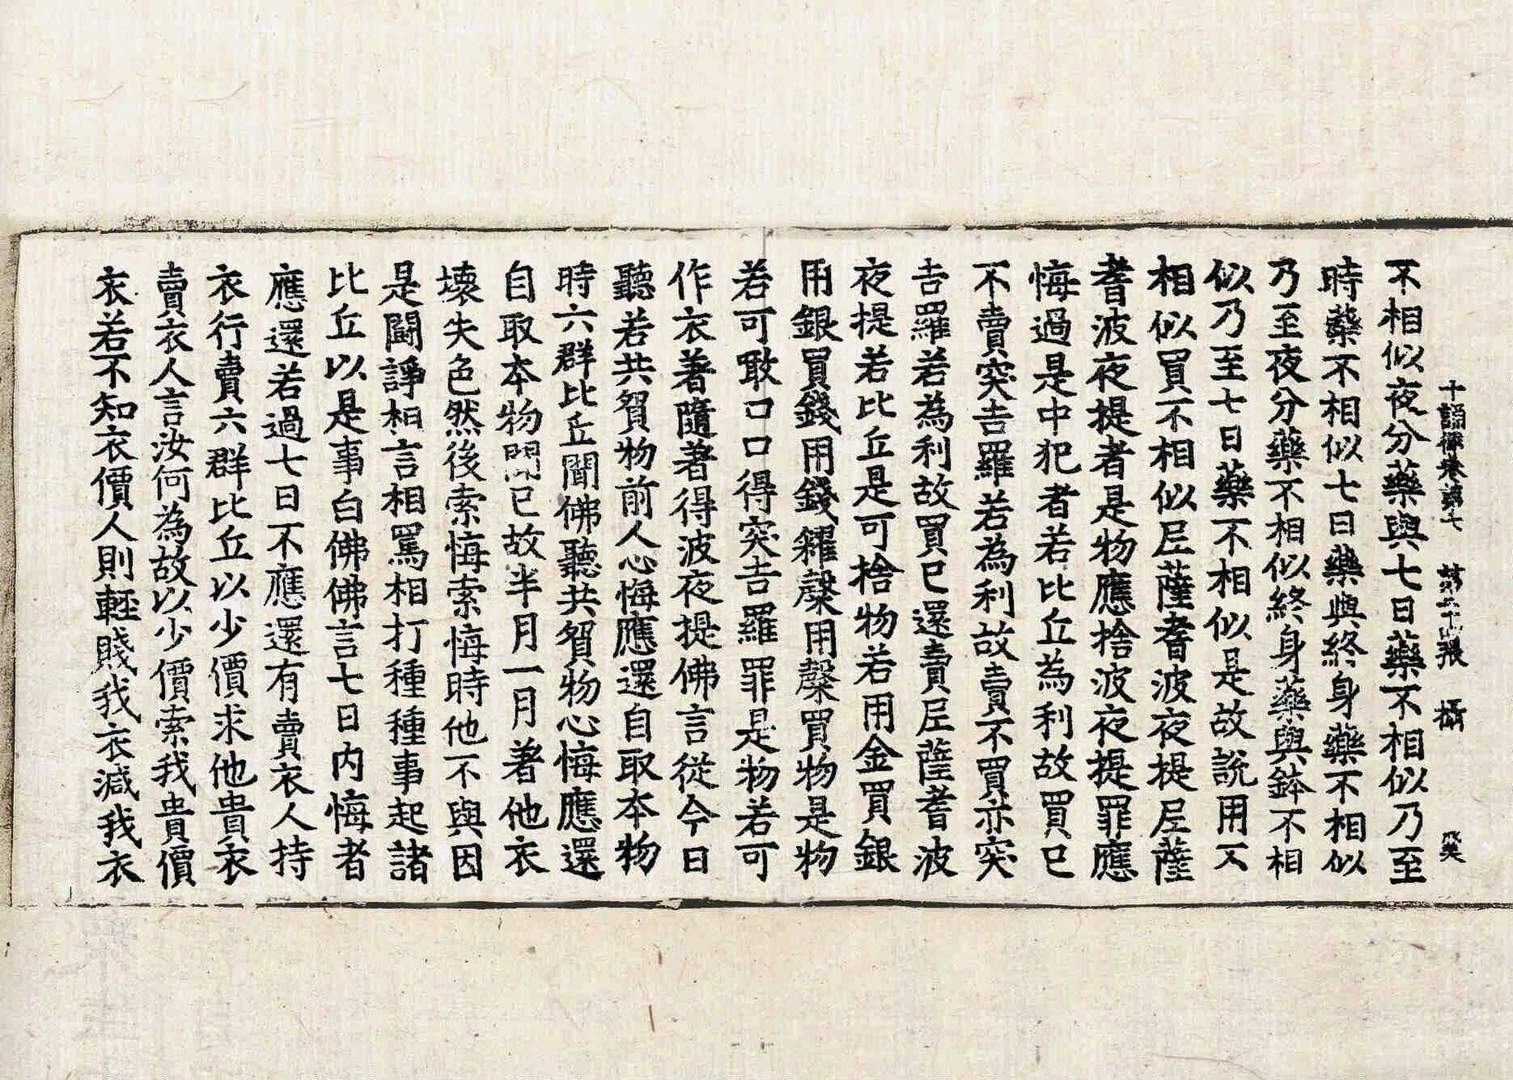 十誦律卷第七 第二十四張 攝
不相似夜分藥與七日藥不相似乃至
時藥不相似七日藥與終身藥不相似
乃至夜分藥不相似終身藥與鉢不相
似乃至七日藥不相似是故說用不
相似買不相似尼薩耆波夜提尼薩
耆波夜提者是物應捨波夜提罪應
悔過是中犯者若比丘為利故買已
不賣突吉羅若為利故賣不買亦突
吉羅若為利故買已還賣尼薩耆波
夜提若比丘是可捨物若用金買銀
用銀買錢用錢糴糓用糓買物是物
若可敢口口得突吉羅罪是物若可
作衣著隨著得波夜提佛言從今日
聽若共貿物前人心悔應還自取本物
時六群比丘聞佛聽共貿物心悔應還
自取本物聞已故半月一月著他衣
壞失色然後索悔索悔時他不與因
是鬪諍相言相罵相打種種事起諸
比丘以是事白佛佛言七日內悔者
應還若過七日不應還有賣衣人持
衣行賣六群比丘以少價求他貴衣
賣衣人言汝何為故以少價索我貴價
衣若不知衣價人則輕賤我衣減我衣